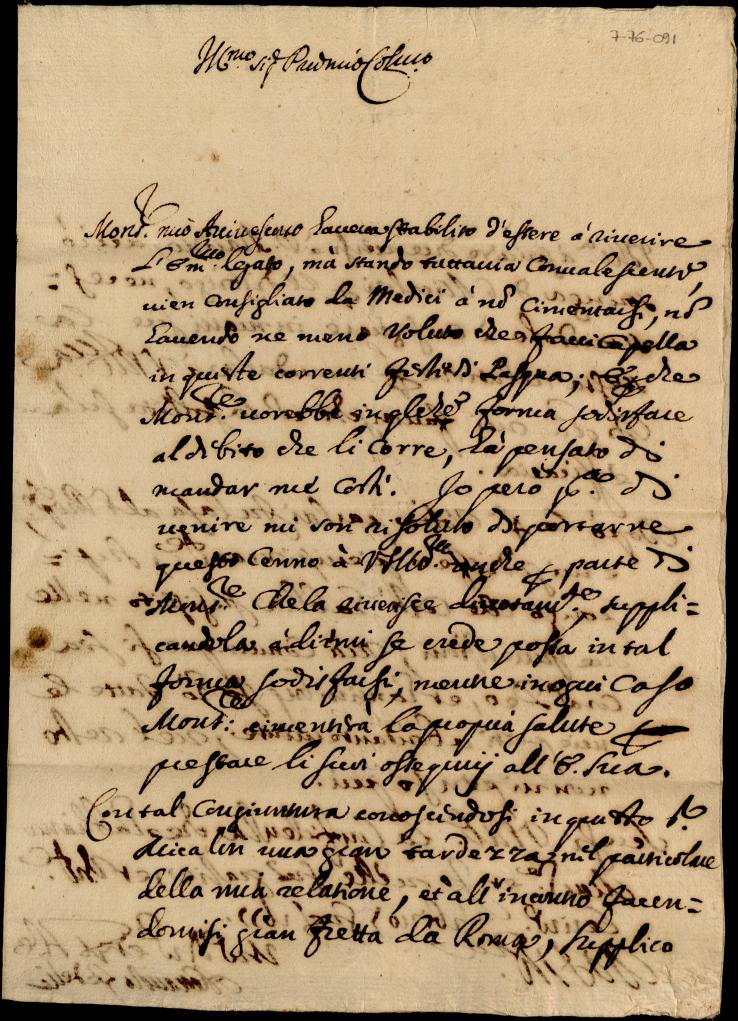 7-76-091
Ill.mo Sig.r Padron mio Col.mo
Mons.r mio Arcivescovo haveva stabilito d'essere à riverire
l'Em.mo legato, mà stando tuttavia Convalescente,
vien Consigliato da Medici à nō Cimentarsi, nō
havendo ne meno voluto che facci Capella
in queste correnti feste di Pasqua; che
Mons.re vorebbe in qlche forma sodisfare
al debito che li Corre, hà pensato di
mandar me Costì. Io però p.a di
venire mi son risoluto di portarne
questo Cenno à V.S. Ill.ma anche p parte di
Mons.re Che la riverisce divotam.te, suppli=
candola à dirmi se crede possa in tal
forma sodisfarsi, mentre in ogni Caso
Mons.re cimentirà la propria salute p
prestare li suoi ossequij all'E. Sua.
Con tal Congiuntura conoscendosi in questo S.r
una gran tardezza nel particolare
della mia relatione, et all'incontro facen=
domisi gran fretta da Roma, supplico